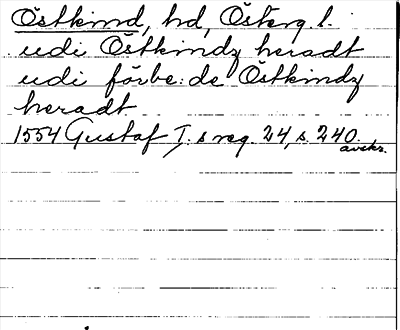 Östkind, hd, Österg. l.
udi Östkindz heradt
udi förbe:de Östkindz
heradt
1554 Gustaf I:s reg. 24, s. 240.
avskr.